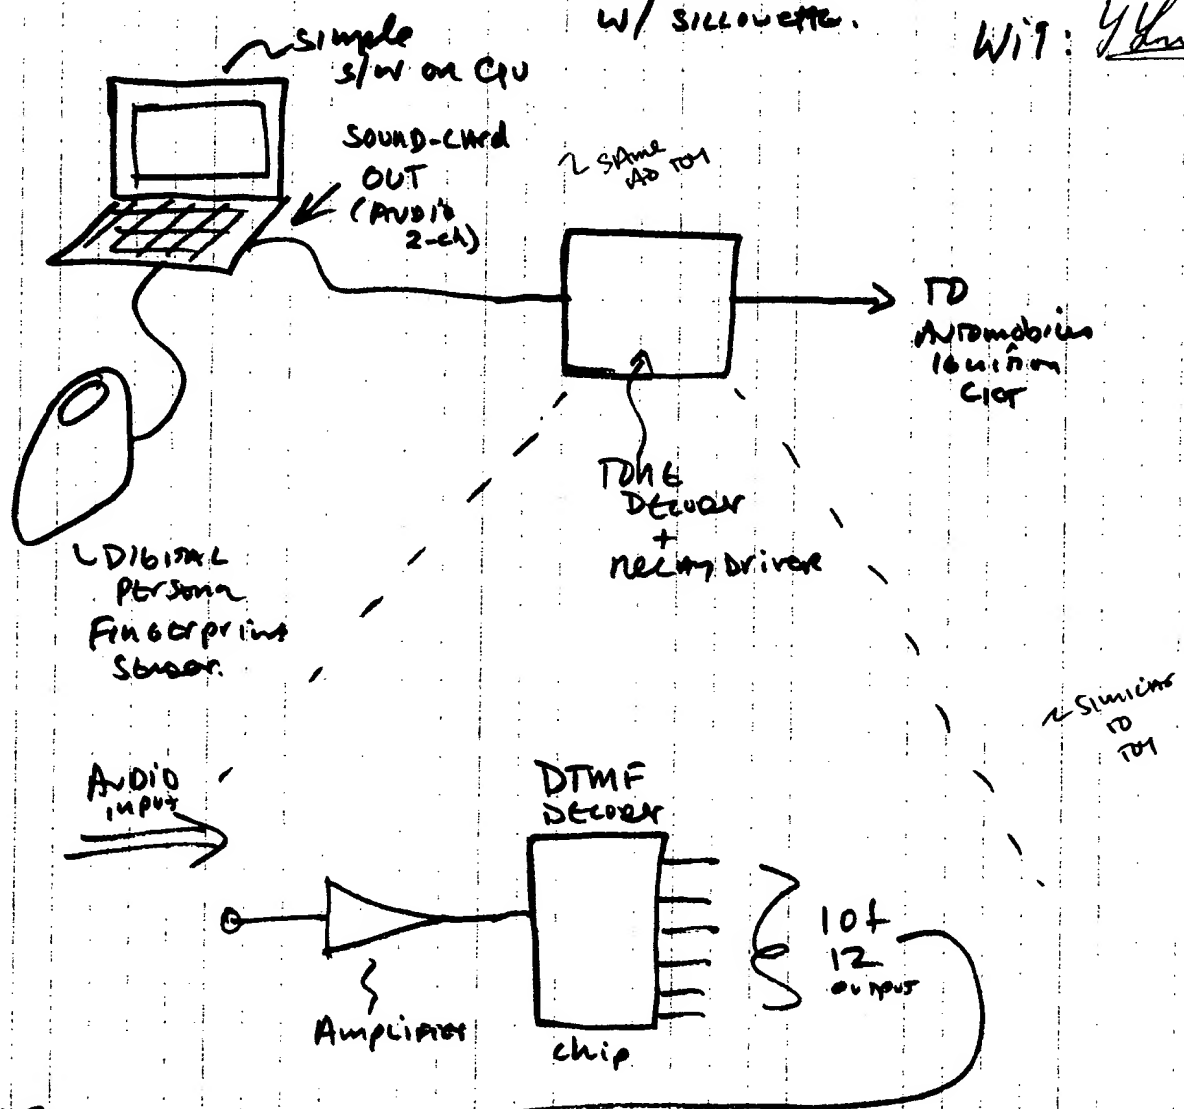 w/ SILLOUETTE.
Wit:
simple
s/w on CPU
SOUND-CARD
OUT
(AUDIO
2-ch)
~ SAME
AS TOY
TO
Automobiles
Ignition
CKT
TONE
DECODER
+
RELAY Driver
DIGITAL
Persona
Fingerprint
Sensor.
~ SIMILAR
TO
TOY
AUDIO
input
DTMF
DECODER
1 of
12
output
Amplifier
chip